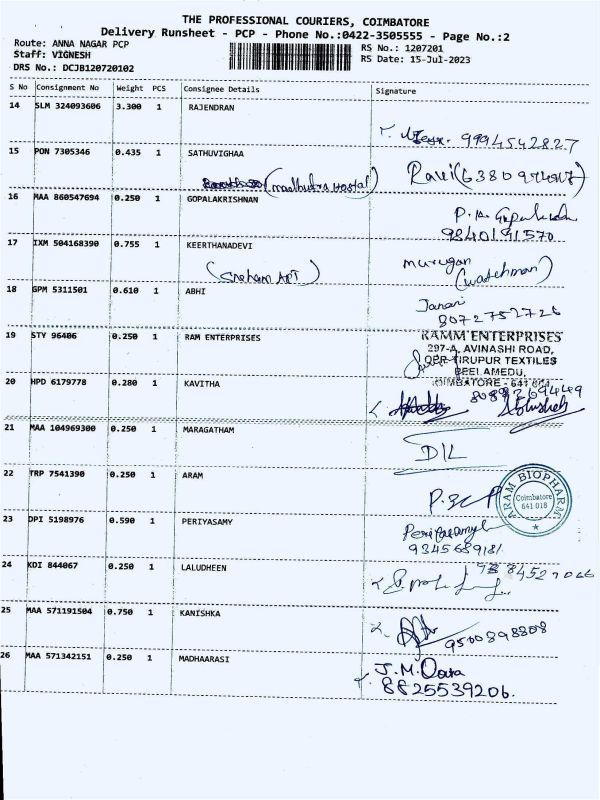 THE PROFESSIONAL COURIERS, COIMBATORE
Delivery Runsheet - PCP - Phone No.:0422-3505555 - Page No.:2
Route: ANNA NAGAR PCP
Staff: VIGNESH
DRS No.: DCJB120720102
RS No.: 1207201
RS Date: 15-Jul-2023
S No Consignment No Weight PCS Consignee Details Signature
14 SLM 324093606 3.300 1 RAJENDRAN
9994542827
15 PON 7305346 0.435 1 SATHUVIGHAA
(madhura Hostal)
Ravi (
16 MAA 860547694 0.250 1 GOPALAKRISHNAN
P.
9840191570
17 IXM 504168390 0.755 1 KEERTHANADEVI
(Sneham APT)
murugan
(watchman)
18 GPM 5311501 0.610 1 ABHI
Janani
8072752726
19 STY 96406 0.250 1 RAM ENTERPRISES
RAMM ENTERPRISES
297-A, AVINASHI ROAD,
OPP. TIRUPUR TEXTILES
PEELAMEDU,
COIMBATORE - 641 004
20 HPD 6179778 0.280 1 KAVITHA
21 MAA 104969300 0.250 1 MARAGATHAM
D/L
22 TRP 7541390 0.250 1 ARAM
ARAM BIOPHARM
Coimbatore
641 018
23 DPI 5198976 0.590 1 PERIYASAMY
9345689181
24 KDI 844067 0.250 1 LALUDHEEN
25 MAA 571191504 0.750 1 KANISHKA
9500898808
26 MAA 571342151 0.250 1 MADHAARASI
J.M.
8825539206.